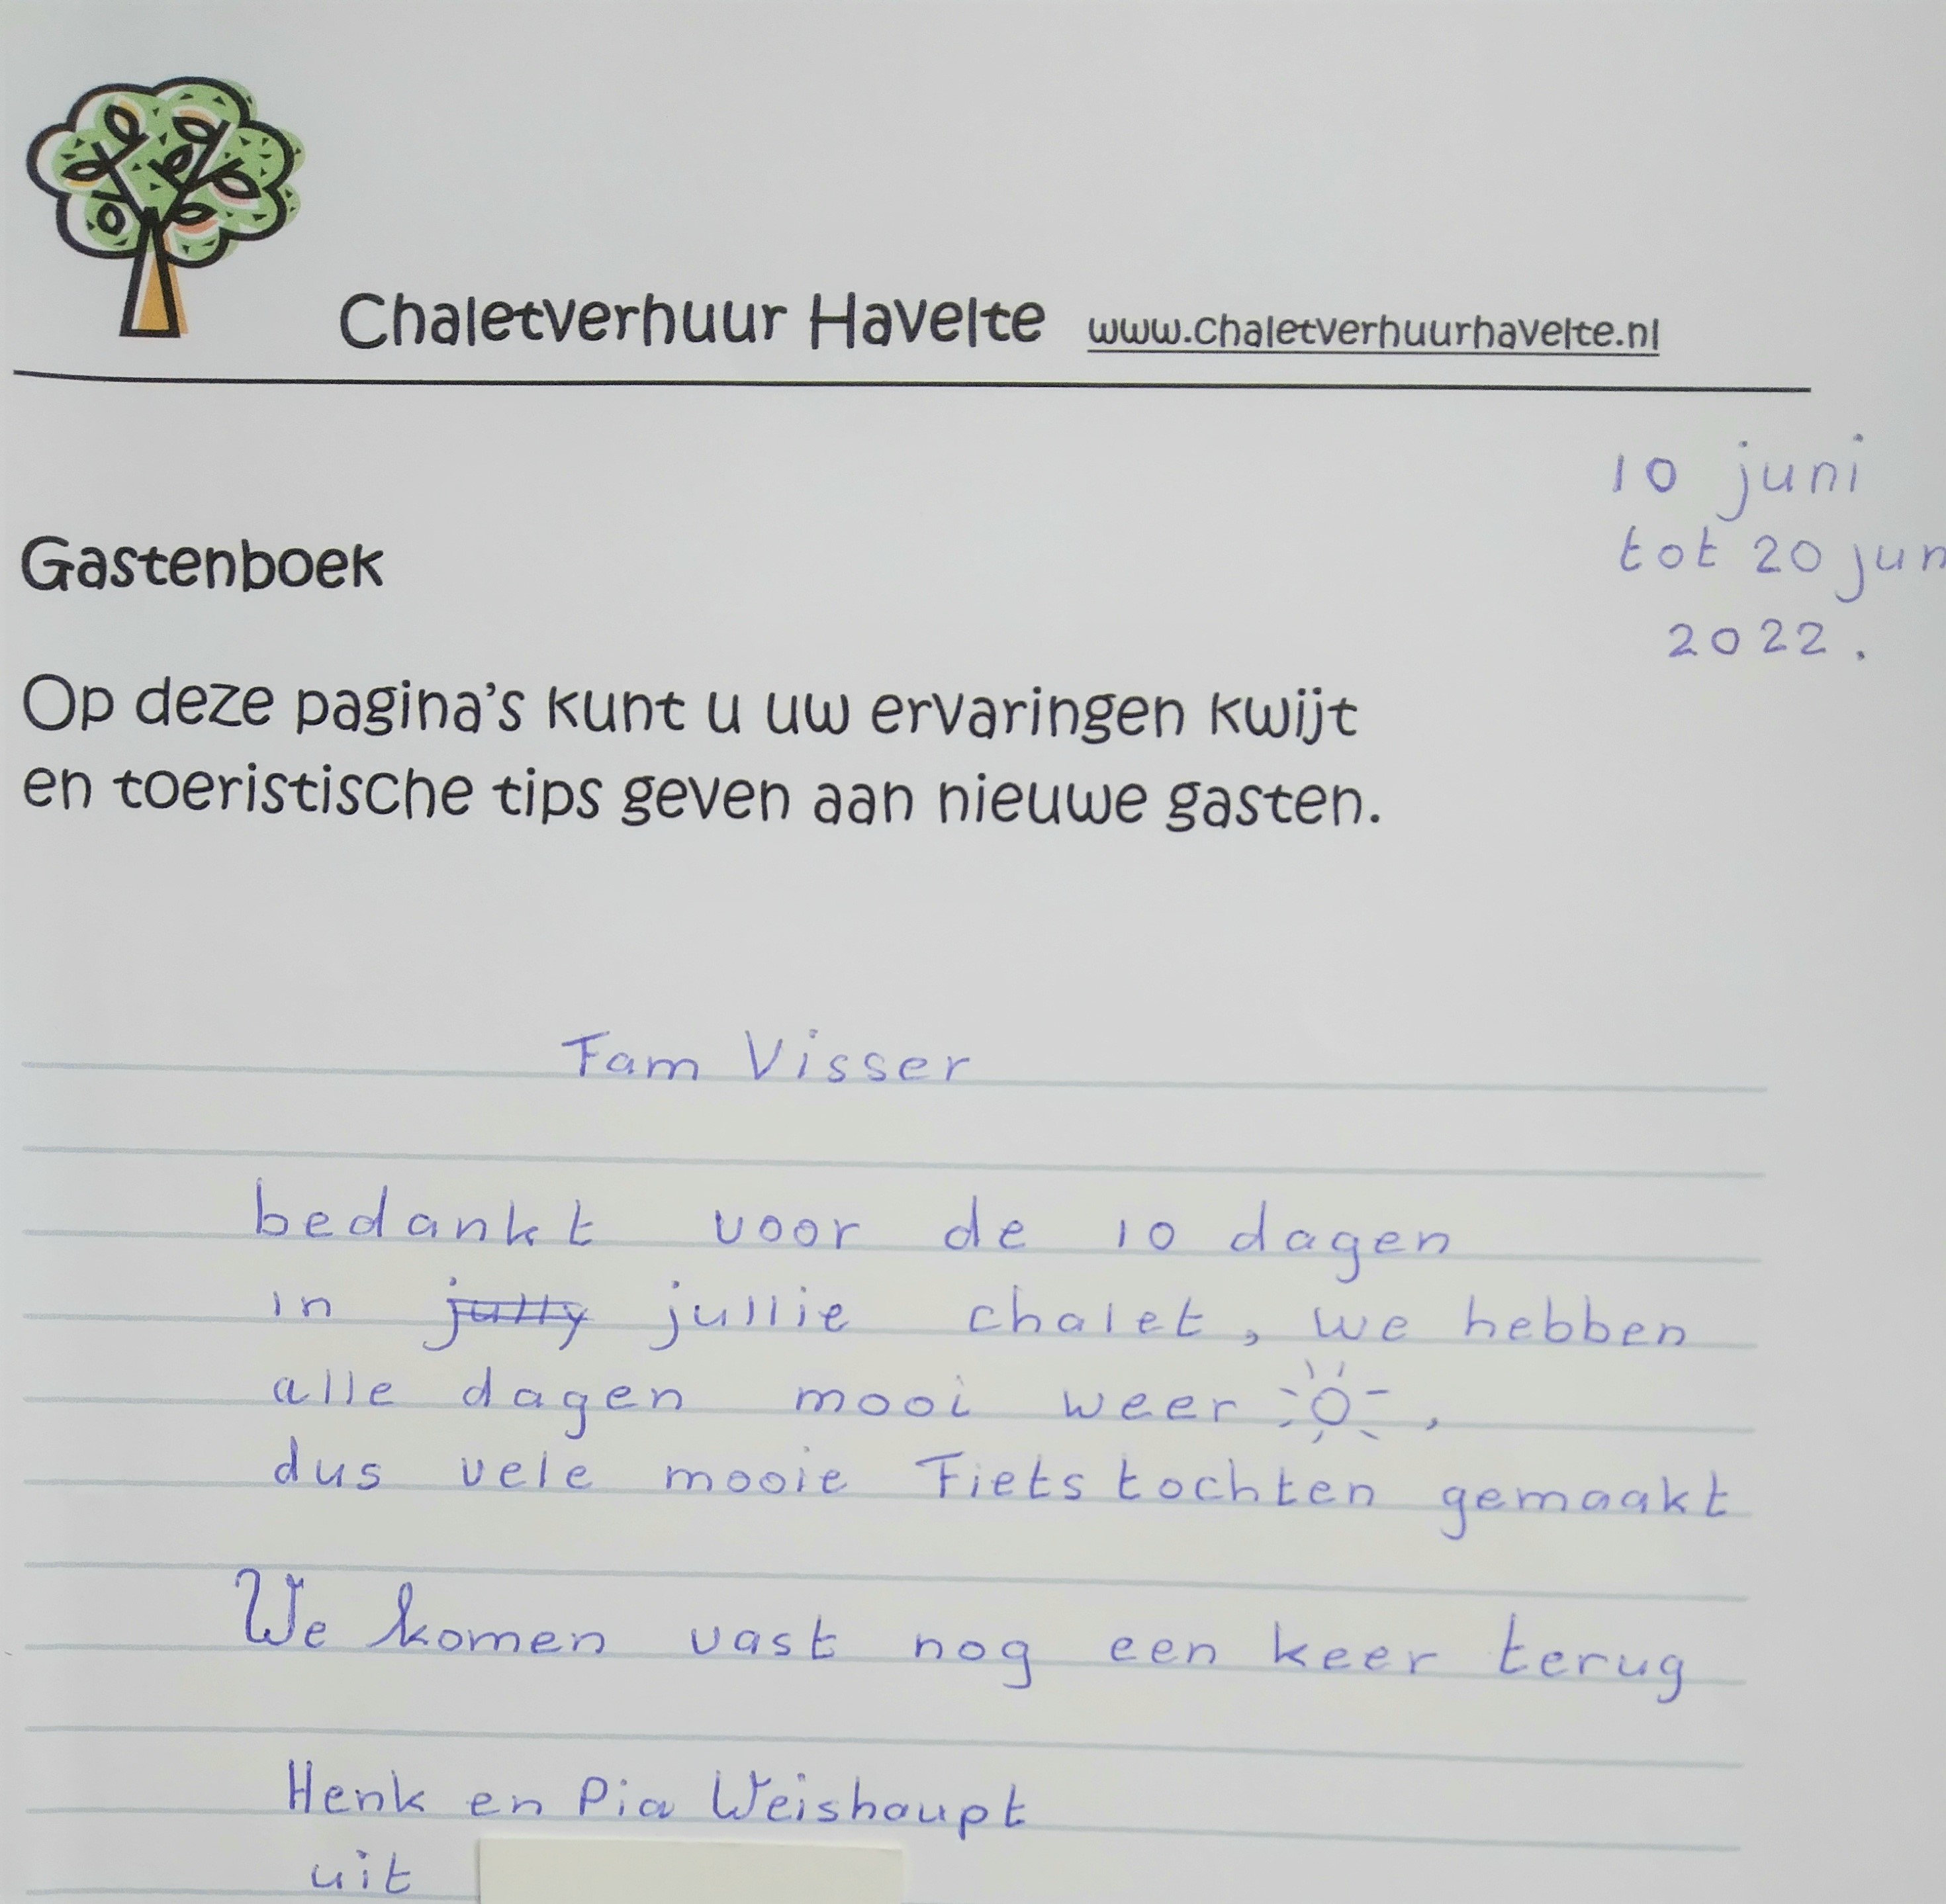 Chaletverhuur Havelte www.chaletverhuurhavelte.nl
10 juni
tot 20 jun
2022.
Gastenboek
Op deze pagina's kunt u uw ervaringen kwijt
en toeristische tips geven aan nieuwe gasten.
Fam Visser
bedankt voor de 10 dagen
in jully jullie chalet, we hebben
alle dagen mooi weer ,
dus vele mooie Fietstochten gemaakt
We komen vast nog een keer terug
Henk en Pia Weishaupt
uit